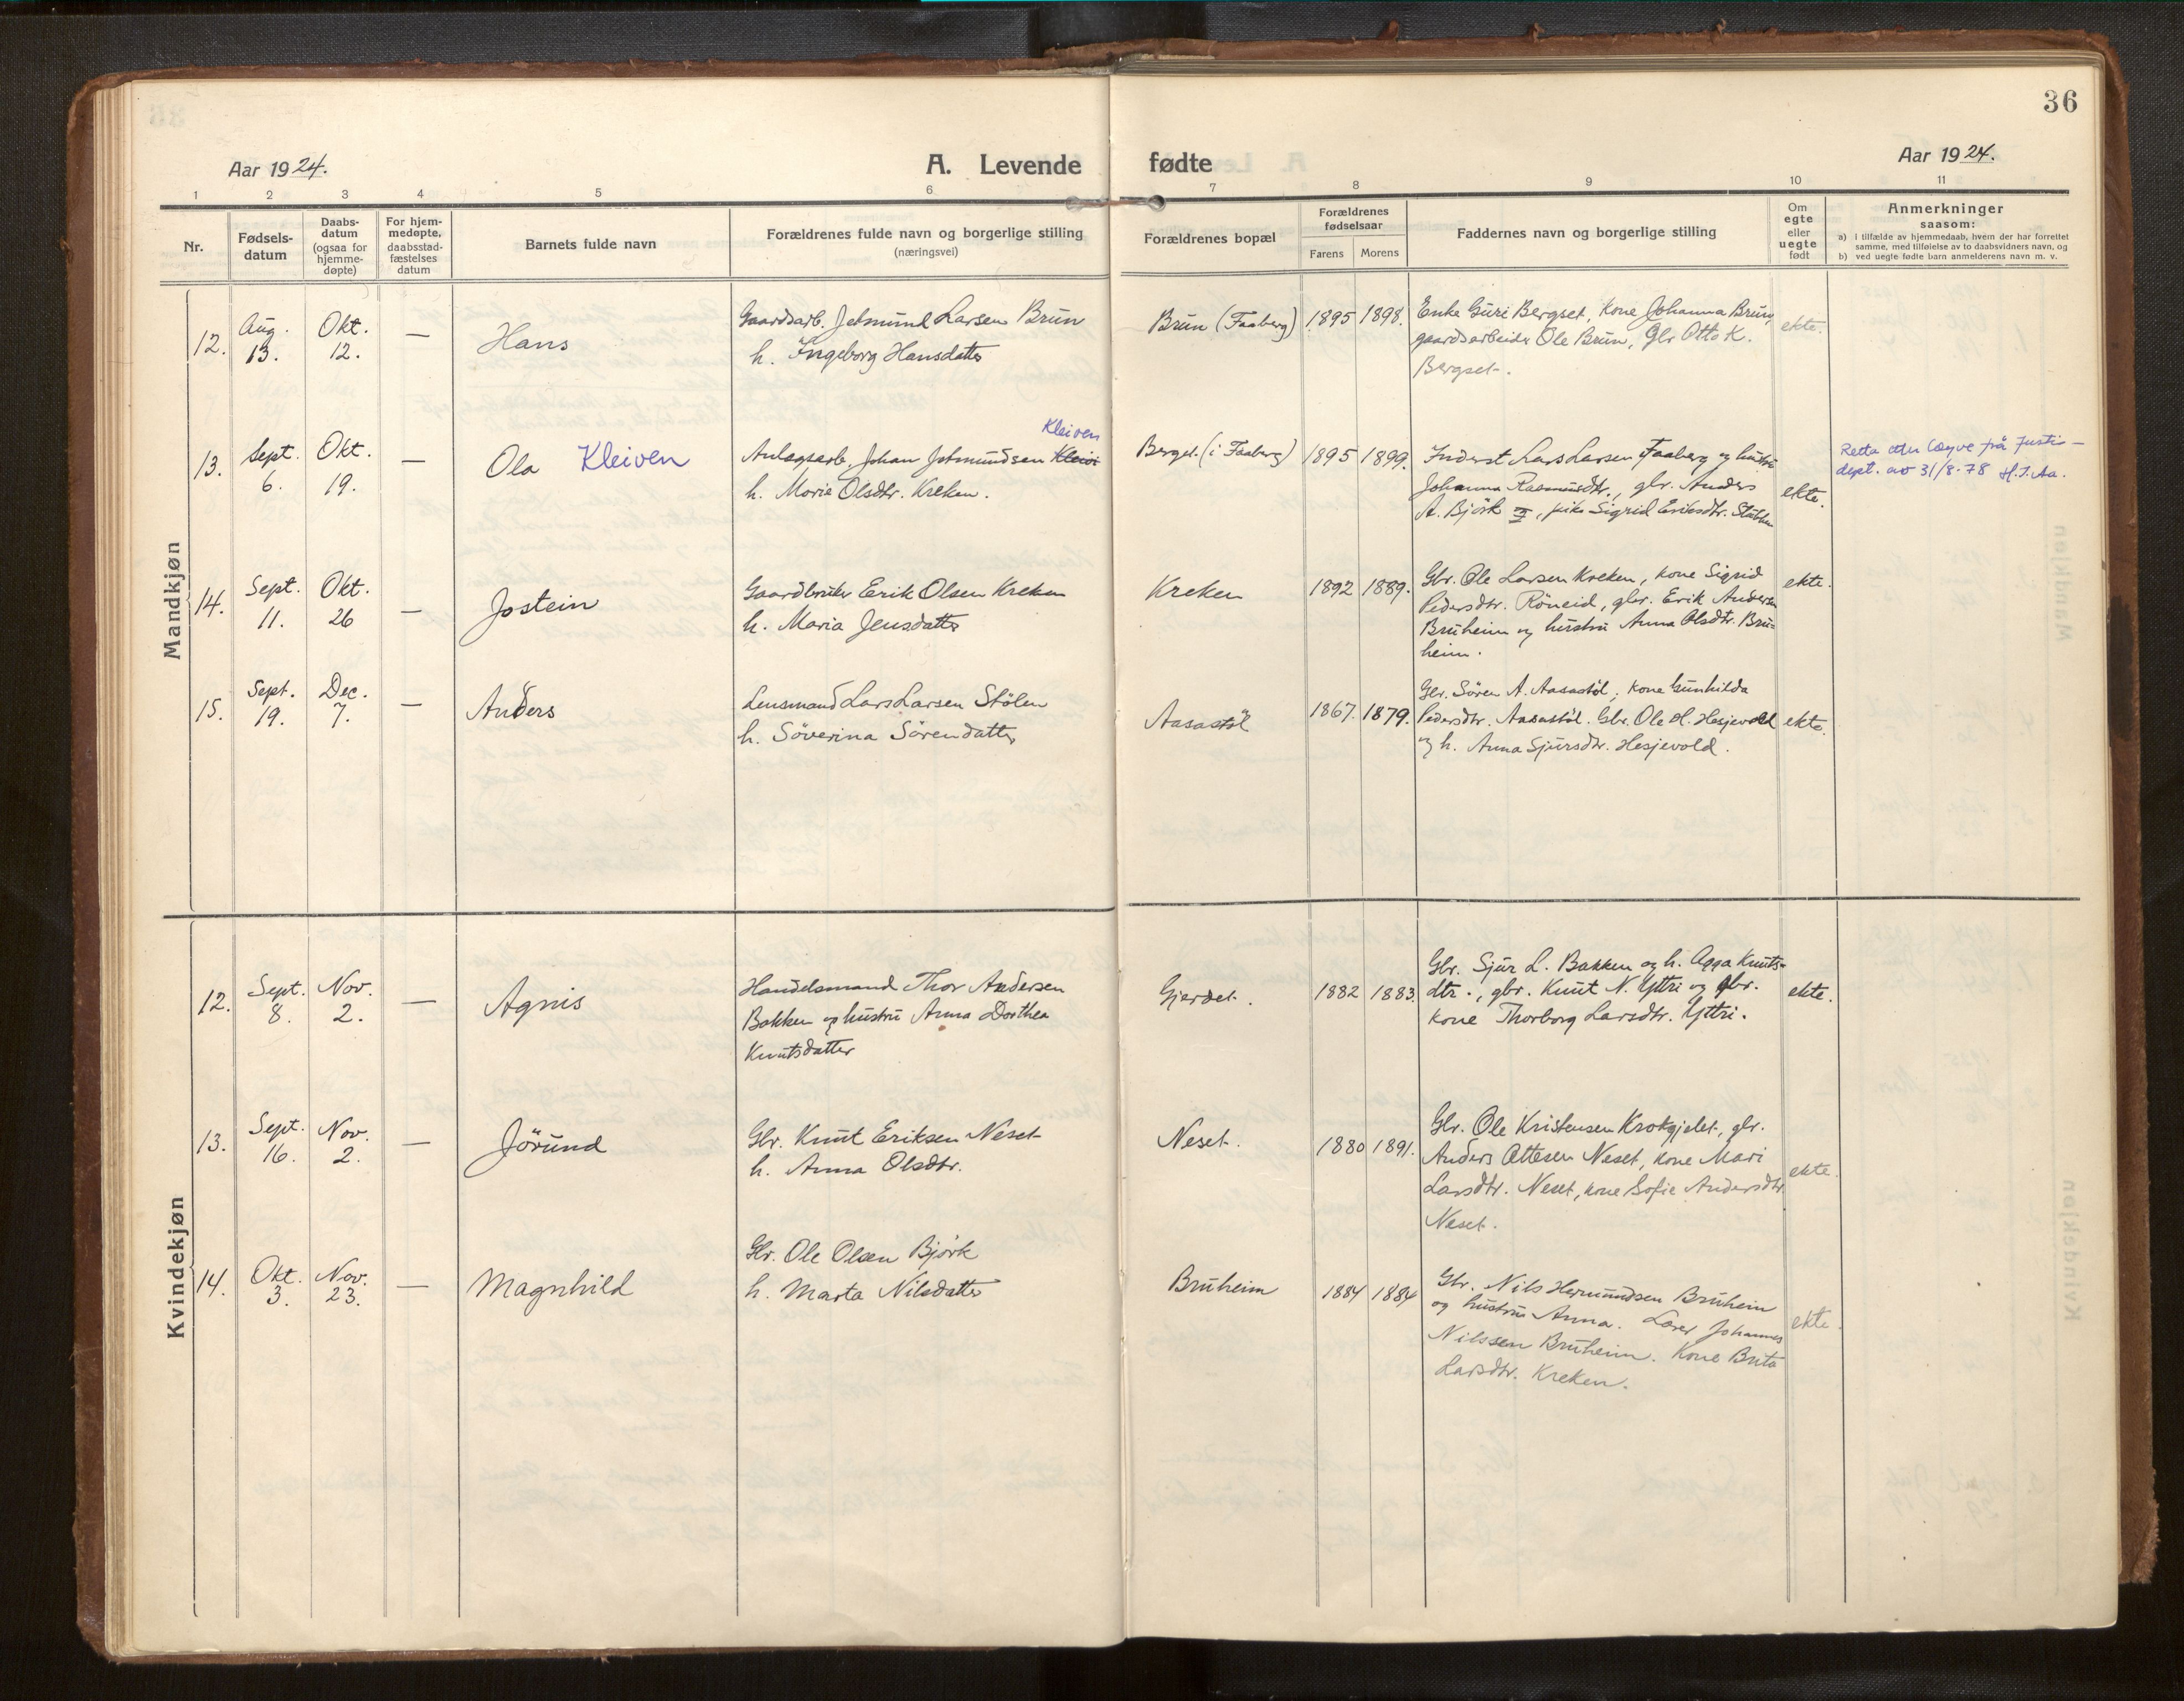 36
Aar 1924.
A. Levende fødte
Aar 1924.
1 2 3 4 5 6 7 8 9 10 11
Nr.
Fødsels-
datum
Daabs-
datum
(ogsaa for
hjemme-
døpte)
For hjem-
medøpte,
daabsstad-
fæstelses
datum
Barnets fulde navn
Forældrenes fulde navn og borgerlige stilling
(næringsvei)
Forældrenes bopæl
Forældrenes
fødselsaar
Farens Morens
Faddernes navn og borgerlige stilling
Om
egte
eller
uegte
født
Anmerkninger
saasom:
a) i tilfælde av hjemmedaab, hvem der har forrettet
samme, med tilføielse av to daabsvidners navn, og
b) ved uegte fødte barn anmelderens navn m. v.
Mandkjøn
12. Aug. 13. Okt. 12. — Hans
Gaardsarb. Jetmund Larsen Brun
h. Ingeborg Hansdatter
Brun (Faaberg) 1895 1898.
Enke Guri Bergset, kone Johanna Brun,
gaardsarbeider Ole Brun, Gbr Otto K.
Bergset.
ekte.
13. Sept. 6. Okt. 19. — Ola Kleiven
Kleiven
Anlægsarb. Johan Jetmundsen Kleiv
h. Marie Olsdtr. Kreken.
Berget (i Faaberg) 1895 1899.
Inderst Lars Larsen Faaberg og hustru
Johanna Rasmusdtr., gbr. Anders
A. Björk og, pike Sigrid Eriksdtr.
ekte.
Retta etter løyve frå Justis-
dept. av 31/8-78 H.J.Aa.
14. Sept. 11. Okt. 26 — Jostein
Gaardbruker Erik Olsen Kreken
h. Maria Jensdatter
Kreken 1892 1889.
Gbr. Ole Larsen Kreken, kone Sigrid
Pedersdtr. Röneid, gbr. Erik Andersen
Bruheim og hustru Anna Olsdtr. Bru-
heim.
ekte.
15. Sept. 19. Dec. 7. — Anders
Lensmand Lars Larsen Stölen
h. Söverina Sörendatter
Aasastöl 1867. 1879.
Gbr. Sören A. Aasastöl, kone Gunhilda
Pedersdtr. Aasastöl. Gbr. Ole H. Hesjevold
og h. Anna Sjursdtr. Hesjevold.
ekte.
Kvindekjøn
12. Sept. 8. Nov. 2. — Agnis
Handelsmand Thor Andersen
Bakken og hustru Anna Dorthea
Knutsdatter
Gjerdet. 1882 1883.
Gbr. Sjur L. Bakken og h. Agga Knuts-
dtr., gbr. Knut N. Yttri og gbr.
kone Thorborg Larsdtr. Yttri.
ekte.
13. Sept. 16. Nov. 2. — Jörund
Gbr. Knut Eriksen Neset
h. Anna Olsdtr.
Neset. 1880 1891.
Gbr. Ole Kristensen Krokgjelet, gbr.
Anders Ottesen Neset, kone Mari
Larsdtr. Neset, kone Sofie Andersdtr.
Neset.
ekte.
14. Okt. 3. Nov. 23. — Magnhild
Gbr. Ole Olsen Björk
h. Marta Nilsdatter
Bruheim 1884 1884
Gbr. Nils Hermundsen Bruheim
og hustru Anna. Lærer Johannes
Nilssen Bruheim. Kone Brita
Larsdtr. Kreken.
ekte.